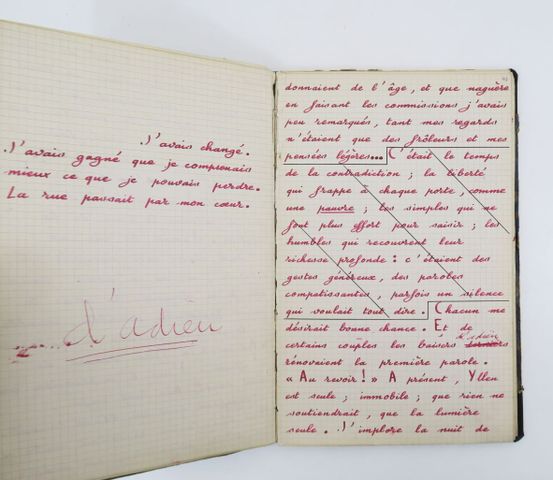 J'avais changé.
J'avais gagné que je comprenais
mieux ce que je pouvais perdre.
La rue passait par mon cœur.
d'adieu
donnaient de l'âge, et que naguère
en faisant les commissions j'avais
peu remarqués, tant mes regards
n'étaient que des frôleurs et mes
pensées légères... C'était le temps
de la contradiction ; la liberté
qui frappe à chaque porte, comme
une pauvre ; les simples qui ne
font plus effort pour saisir ; les
humbles qui recouvrent leur
richesse profonde : c'étaient des
gestes généreux, des paroles
compatissantes, parfois un silence
qui voulait tout dire. Chacun me
désirait bonne chance. Et de
d'adieu
certains couples les baisers derniers
rénovaient la première parole.
« Au revoir ! » A présent, Yllen
est seule ; immobile ; que rien ne
soutiendrait, que la lumière
seule. J'implore la nuit de